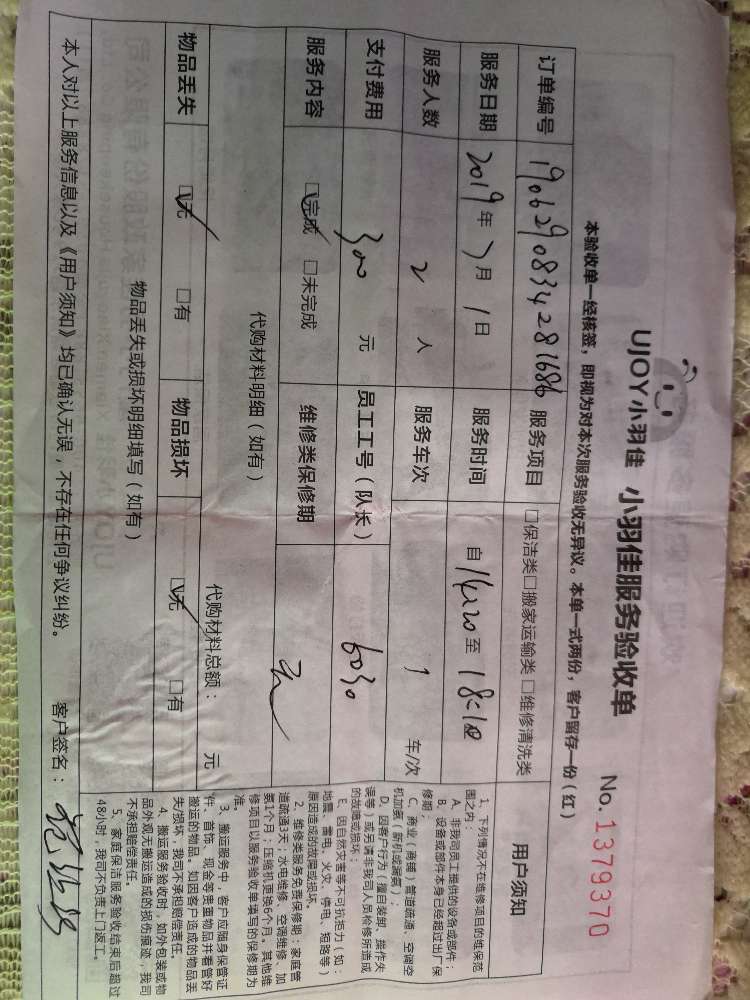 UJOY小羽佳 小羽佳服务验收单
No. 1379370
本验收单一经核签，即视为对本次服务验收无异议。本单一式两份，客户留存一份（红）
订单编号 190629083428 1686 服务项目 □保洁类□搬家运输类 □维修清洗类
服务日期 2019年 7月 1日 服务时间 自 14:20 至 18:10
服务人数 2 人 服务车次 1 车/次
支付费用 300 元 员工工号（队长） 6030
服务内容 ☑完成 □未完成 维修类保修期 无
代购材料明细（如有）
代购材料总额： 元
物品丢失 ☑无 □有 物品损坏 ☑无 □有
物品丢失或损坏明细填写（如有）
用户须知
1、下列情况不在维修项目的维保范
围之内：
A、非我司员工提供的设备或部件；
B、设备或部件本身已经超过出厂保
修期；
C、商业（商铺）管道疏通、空调空
机加氨（新机或漏氨）；
D、因客户行为（擅自装卸、操作失
误等）或另请非我司人员检修所造成
的故障或损坏；
E、因自然灾害等不可抗拒力（如：
地震、雷电、火灾、停电、短路等）
原因造成的故障或损坏。
2、维修类服务免费保修期：家庭管
道疏通3天；水电维修、空调维修、加
氨1个月；压缩机更换6个月。其他维
修项目以服务验收单填写的保修期为
准。
3、搬运服务中，客户应随身保管证
件、首饰、现金等贵重物品并看管好
搬运的物品。如因客户造成的物品丢
失/损坏，我司不承担赔偿责任。
4、搬运服务验收时，如外包装或物
品外观无搬运造成的损伤痕迹，我司
不承担赔偿责任。
5、家庭保洁服务验收结束后超过
48小时，我司不负责上门返工。
本人对以上服务信息以及《用户须知》均已确认无误，不存在任何争议纠纷。 客户签名：